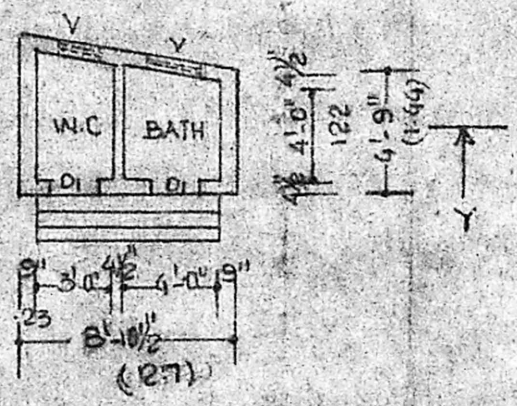 V V
W.C BATH
D1 D1
4½" 4'-0" 4½"
122
4'-9"
(1.44)
Y
9" 3'-0" 4½" 4'-0" 9"
.23
8'-10½"
(12.7)